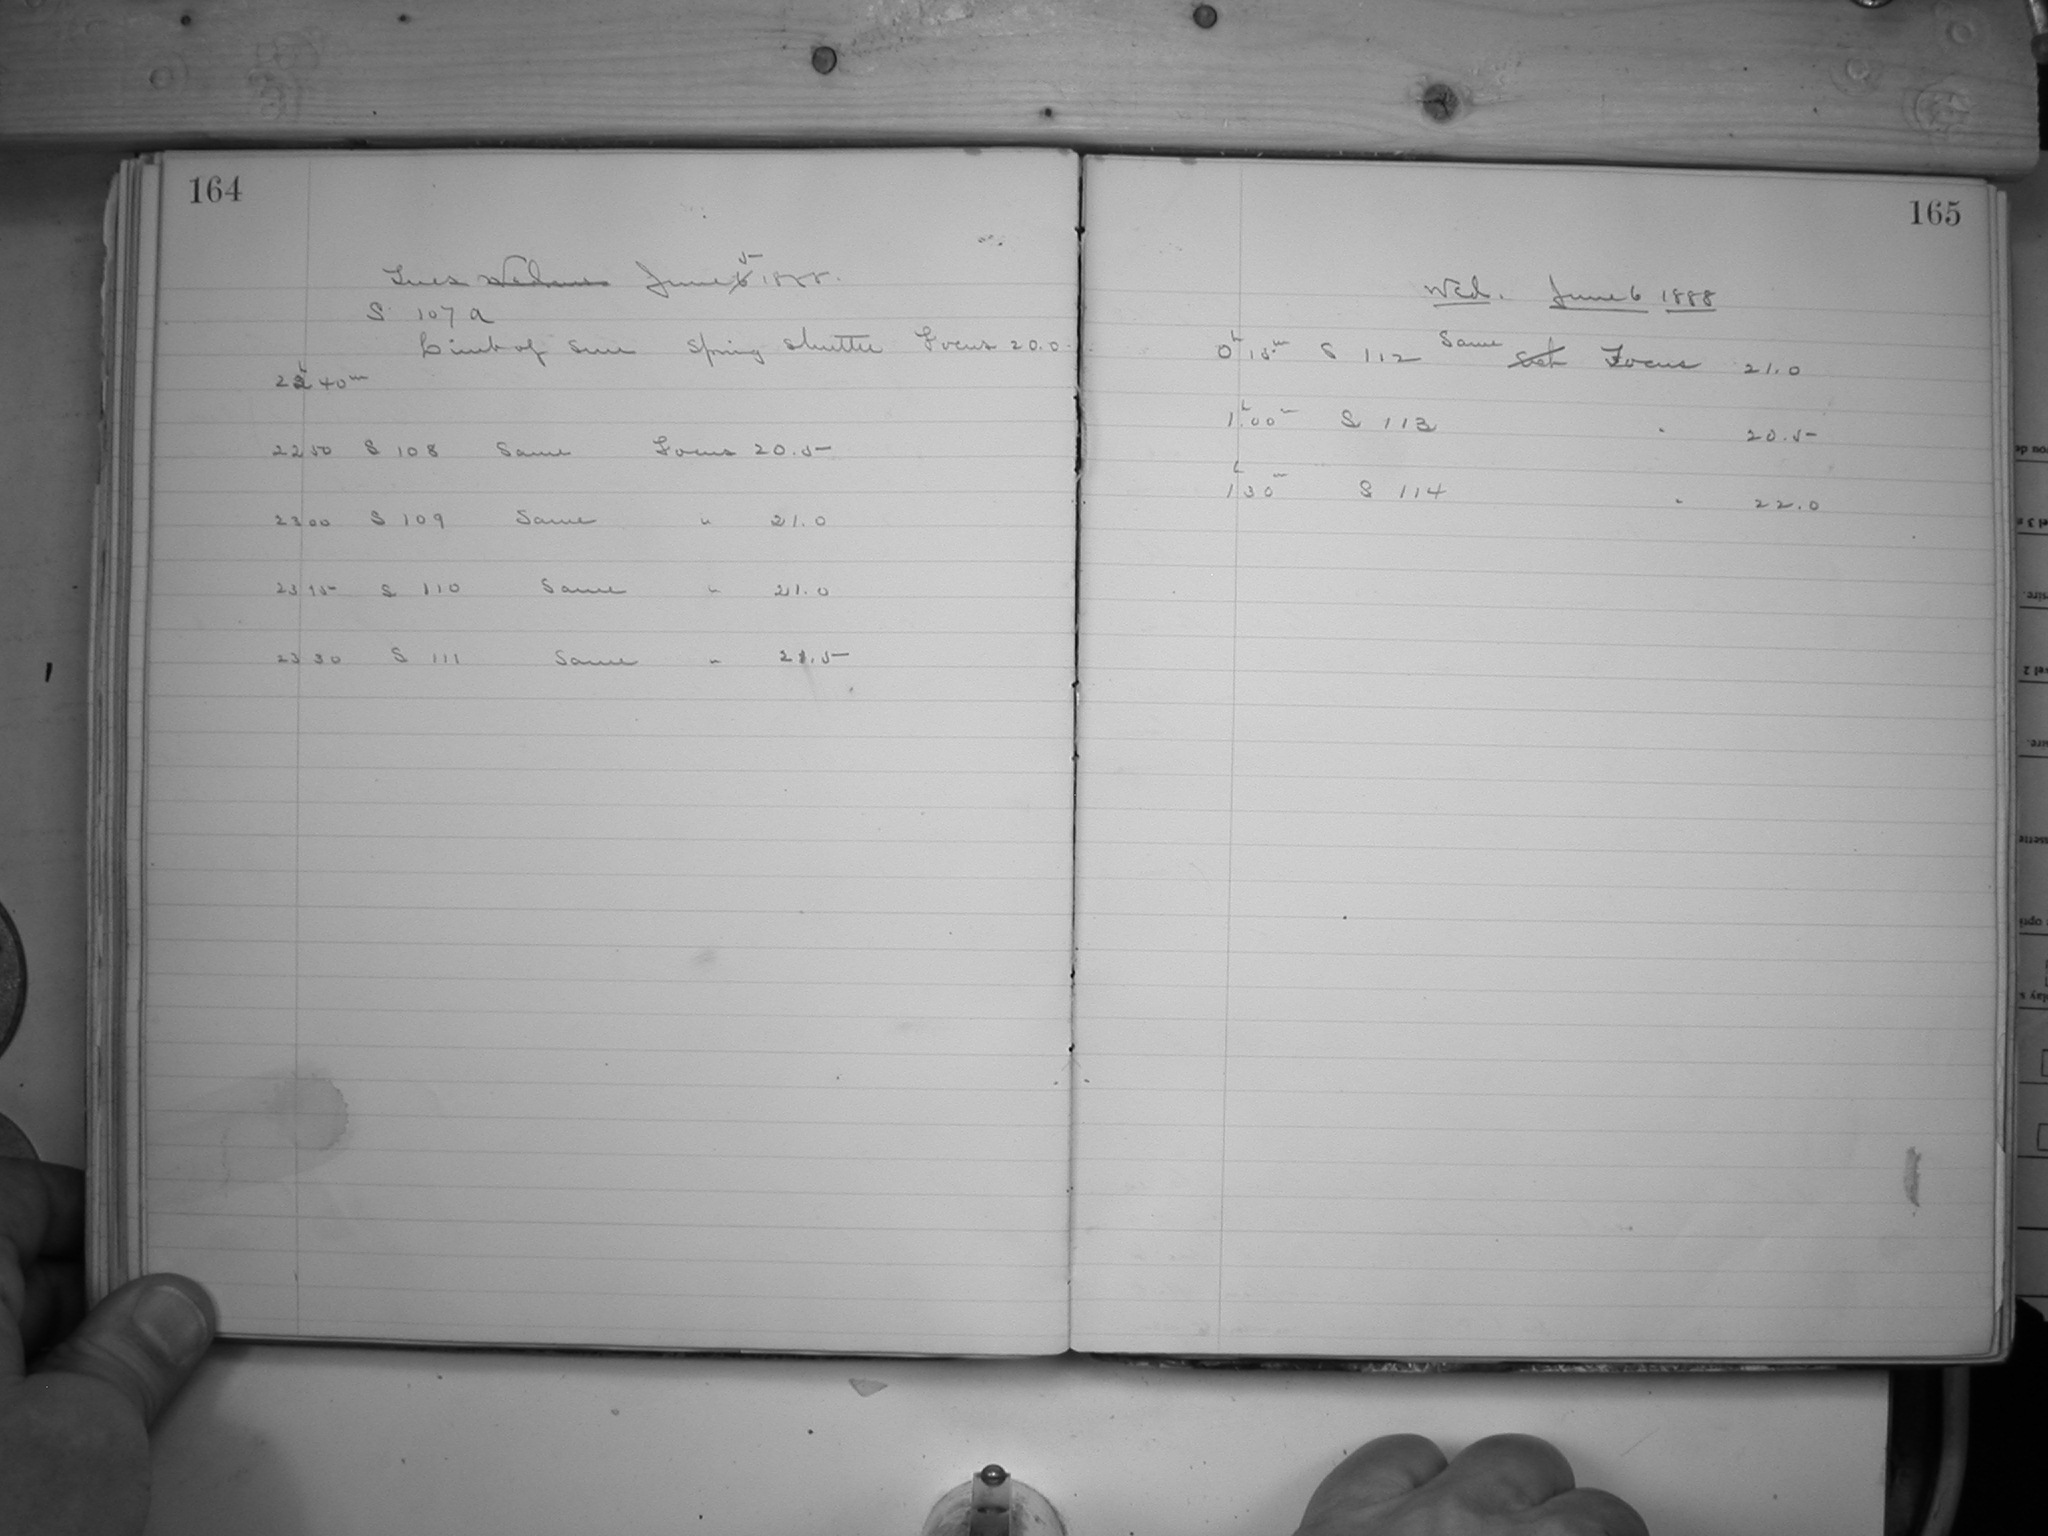 164
Tues Wednes June 6 5 1888.
S 107 a
Limb of Sun Spring Shutter Focus 20.0
22h 40m
22 50 S 108 Same Focus 20.5
23 00 S 109 Same " 21.0
23 15 S 110 Same " 21.0
23 30 S 111 Same " 21.5
165
Wed. June 6 1888
0h 15m S 112 Same Focus 21.0
1h 00m S 113 " 20.5
1h 30m S 114 " 22.0